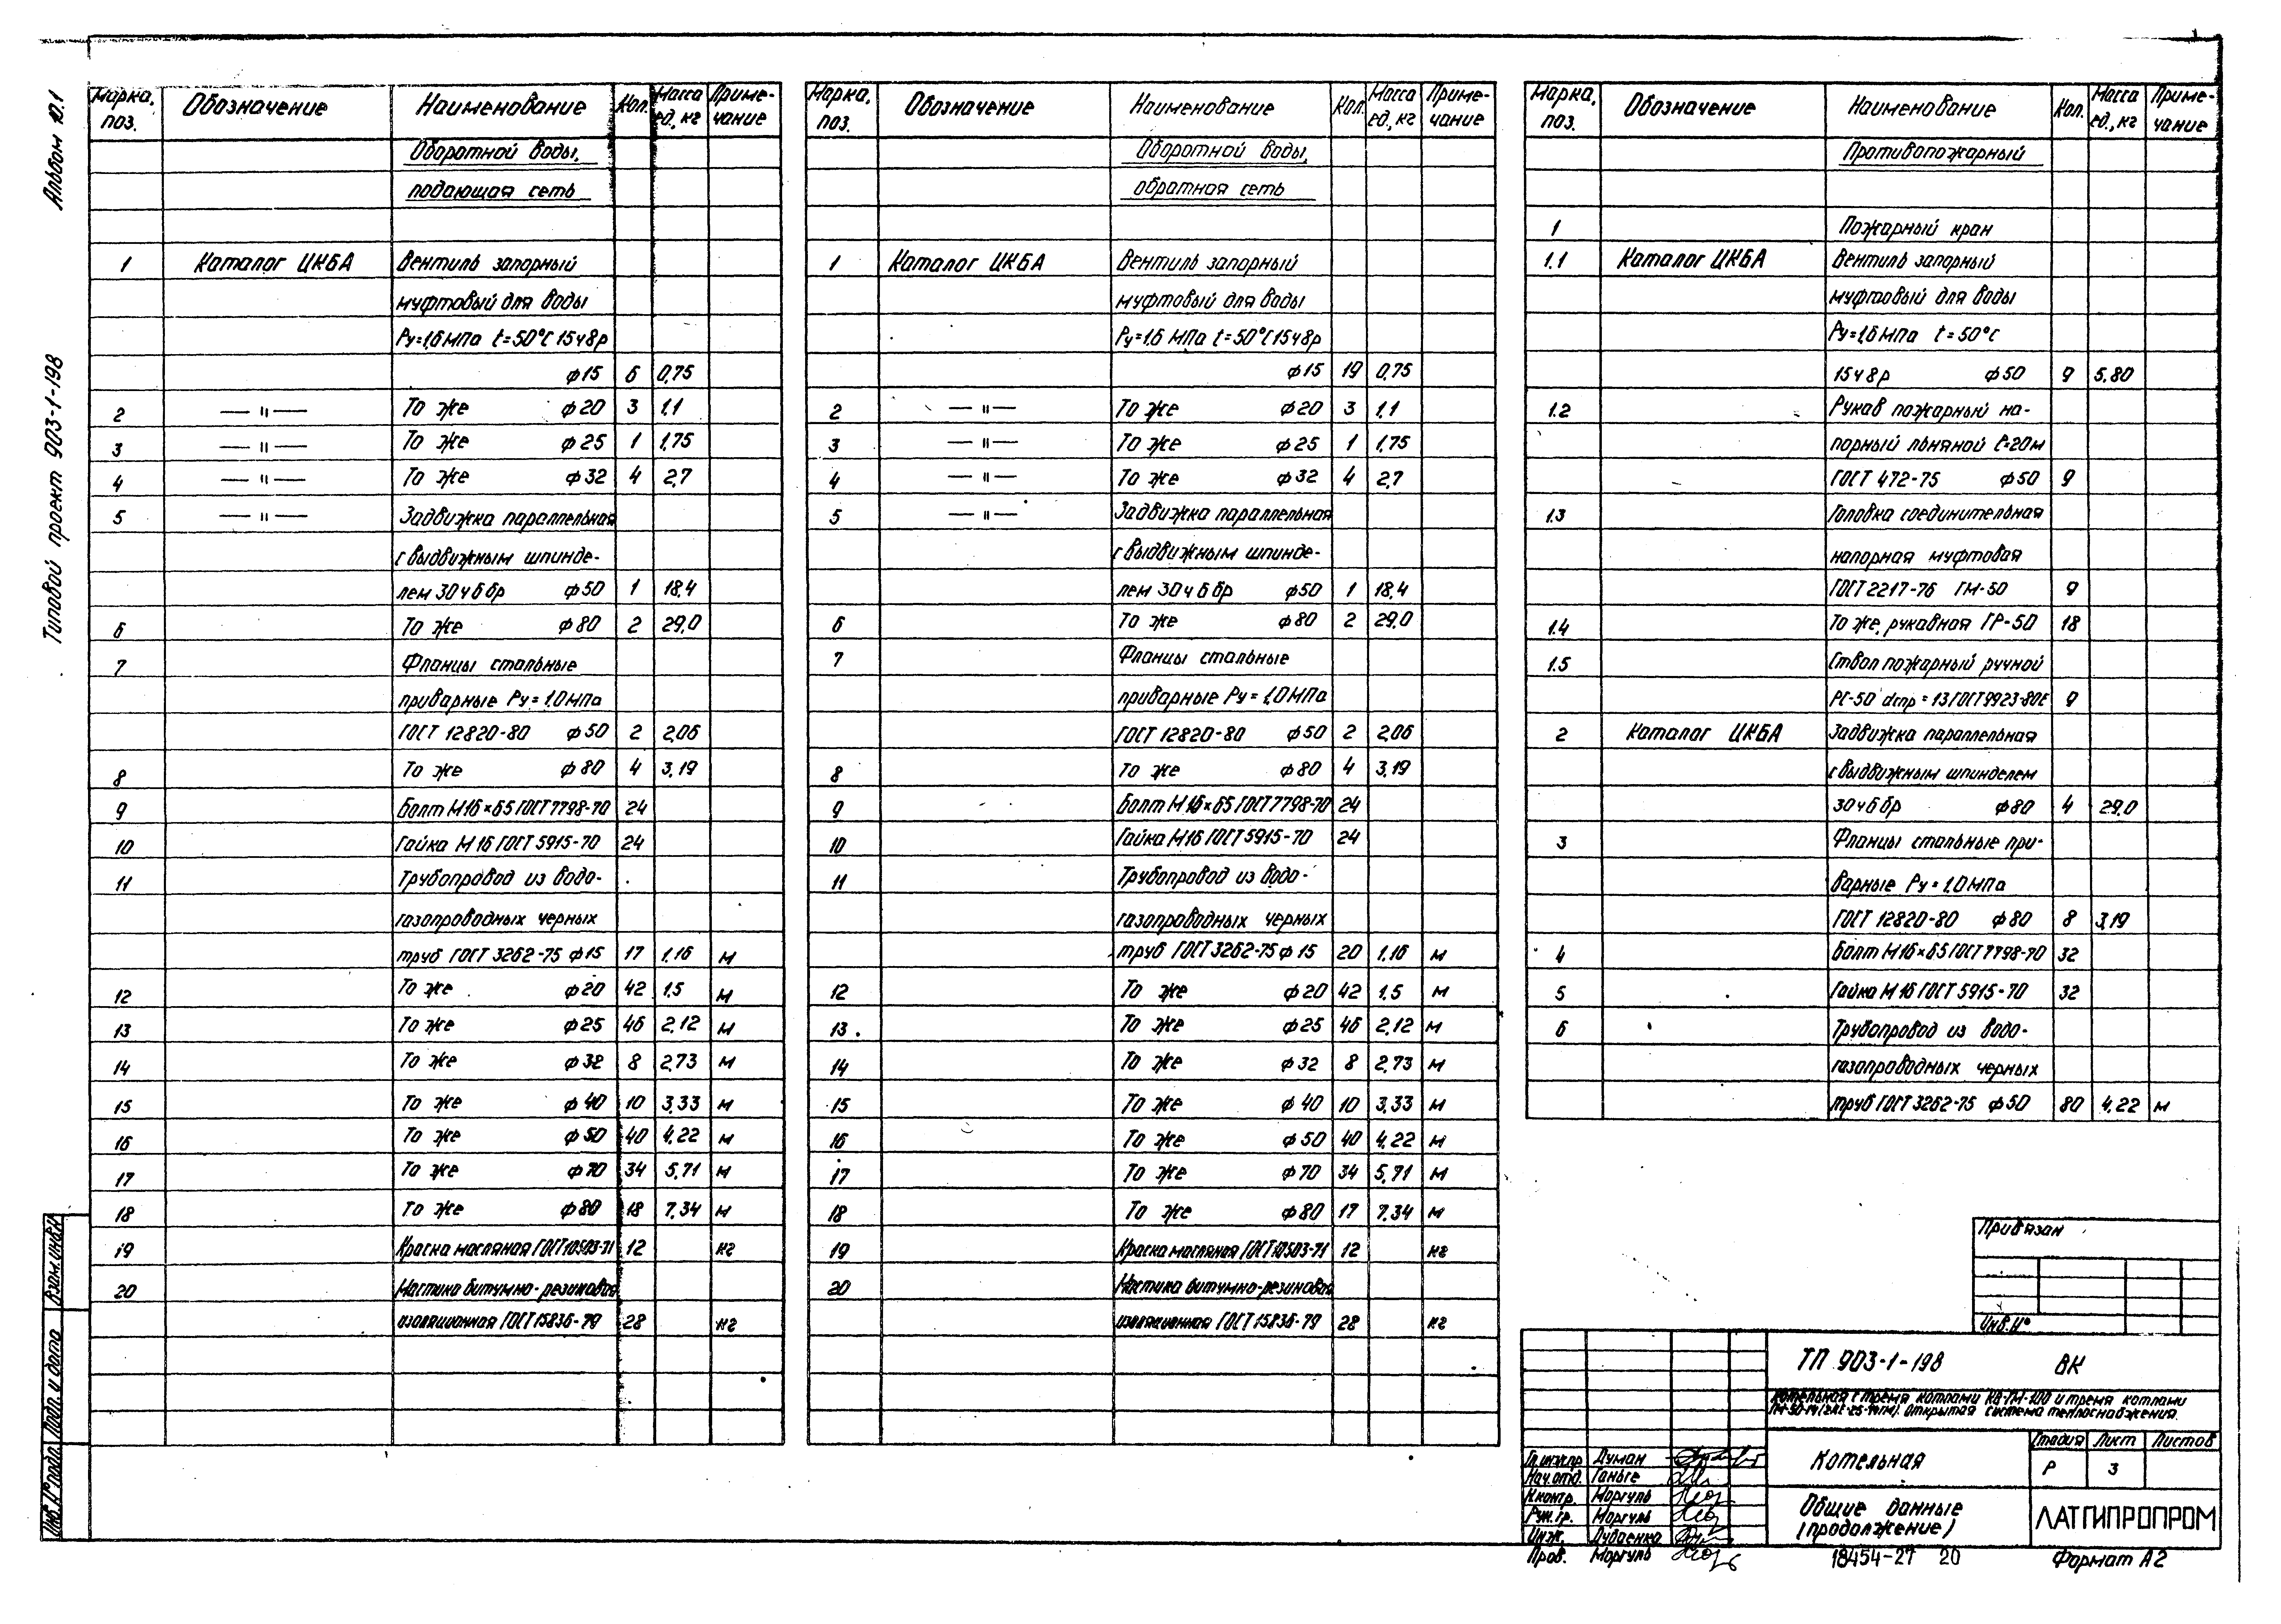 Альбом 10.1
Типовой проект 903-1-198
Марка, поз. Обозначение Наименование Кол. Масса ед, кг Приме- чание
Оборотной воды,
подающая сеть
1 Каталог ЦКБА Вентиль запорный
муфтовый для воды
Ру=1,6 МПа t=50°С 15ч8р
ф15 6 0,75
2 — " — То же ф20 3 1,1
3 — " — То же ф25 1 1,75
4 — " — То же ф32 4 2,7
5 — " — Задвижка параллельная
с выдвижным шпинде-
лем 30ч6бр ф50 1 18,4
6 То же ф80 2 29,0
7 Фланцы стальные
приварные Ру=1,0 МПа
ГОСТ 12820-80 ф50 2 2,06
8 То же ф80 4 3,19
9 Болт М16×65 ГОСТ 7798-70 24
10 Гайка М16 ГОСТ 5915-70 24
11 Трубопровод из водо-
газопроводных черных
труб ГОСТ 3262-75 ф15 17 1,16 м
12 То же ф20 42 1,5 м
13 То же ф25 46 2,12 м
14 То же ф32 8 2,73 м
15 То же ф40 10 3,33 м
16 То же ф50 40 4,22 м
17 То же ф70 34 5,71 м
18 То же ф80 18 7,34 м
19 Краска масляная ГОСТ 10503-71 12 кг
20 Мастика битумно-резиновая
изоляционная ГОСТ 15836-79 28 кг
Марка, поз. Обозначение Наименование Кол. Масса ед, кг Приме- чание
Оборотной воды,
обратная сеть
1 Каталог ЦКБА Вентиль запорный
муфтовый для воды
Ру=1,6 МПа t=50°С 15ч8р
ф15 19 0,75
2 — " — То же ф20 3 1,1
3 — " — То же ф25 1 1,75
4 — " — То же ф32 4 2,7
5 — " — Задвижка параллельная
с выдвижным шпинде-
лем 30ч6бр ф50 1 18,4
6 То же ф80 2 29,0
7 Фланцы стальные
приварные Ру=1,0 МПа
ГОСТ 12820-80 ф50 2 2,06
8 То же ф80 4 3,19
9 Болт М16×65 ГОСТ 7798-70 24
10 Гайка М16 ГОСТ 5915-70 24
11 Трубопровод из водо-
газопроводных черных
труб ГОСТ 3262-75 ф15 20 1,16 м
12 То же ф20 42 1,5 м
13 То же ф25 46 2,12 м
14 То же ф32 8 2,73 м
15 То же ф40 10 3,33 м
16 То же ф50 40 4,22 м
17 То же ф70 34 5,71 м
18 То же ф80 17 7,34 м
19 Краска масляная ГОСТ 10503-71 12 кг
20 Мастика битумно-резиновая
изоляционная ГОСТ 15836-79 28 кг
Марка, поз. Обозначение Наименование Кол. Масса ед., кг Приме- чание
Противопожарный
1 Пожарный кран
1.1 Каталог ЦКБА Вентиль запорный
муфтовый для воды
Ру=1,6 МПа t=50°С
15ч8р ф50 9 5,80
1.2 Рукав пожарный на-
порный льняной ℓ=20м
ГОСТ 472-75 ф50 9
1.3 Головка соединительная
напорная муфтовая
ГОСТ 2217-76 ГМ-50 9
1.4 То же, рукавная ГР-50 18
1.5 Ствол пожарный ручной
РС-50 dспр=13 ГОСТ 9923-80Е 9
2 Каталог ЦКБА Задвижка параллельная
с выдвижным шпинделем
30ч6бр ф80 4 29,0
3 Фланцы стальные при-
варные Ру=1,0 МПа
ГОСТ 12820-80 ф80 8 3,19
4 Болт М16×65 ГОСТ 7798-70 32
5 Гайка М16 ГОСТ 5915-70 32
6 Трубопровод из водо-
газопроводных черных
труб ГОСТ 3262-75 ф50 80 4,22 м
Привязан
Инв.№
ТП 903-1-198 ВК
Котельная с тремя котлами КВ-ГМ-100 и тремя котлами
Открытая система теплоснабжения.
Гл.инж.пр Думан
Нач.отд. Ганьге
Н.контр. Моргуль
Рук.гр. Моргуль
Инж. Дудаенко
Пров. Моргуль
Котельная
Стадия Лист Листов
Р 3
Общие данные
(продолжение)
ЛАТГИПРОПРОМ
18454-27 20
Формат А2
Взам.инв.№
Подп. и дата
Инв.№ подл.